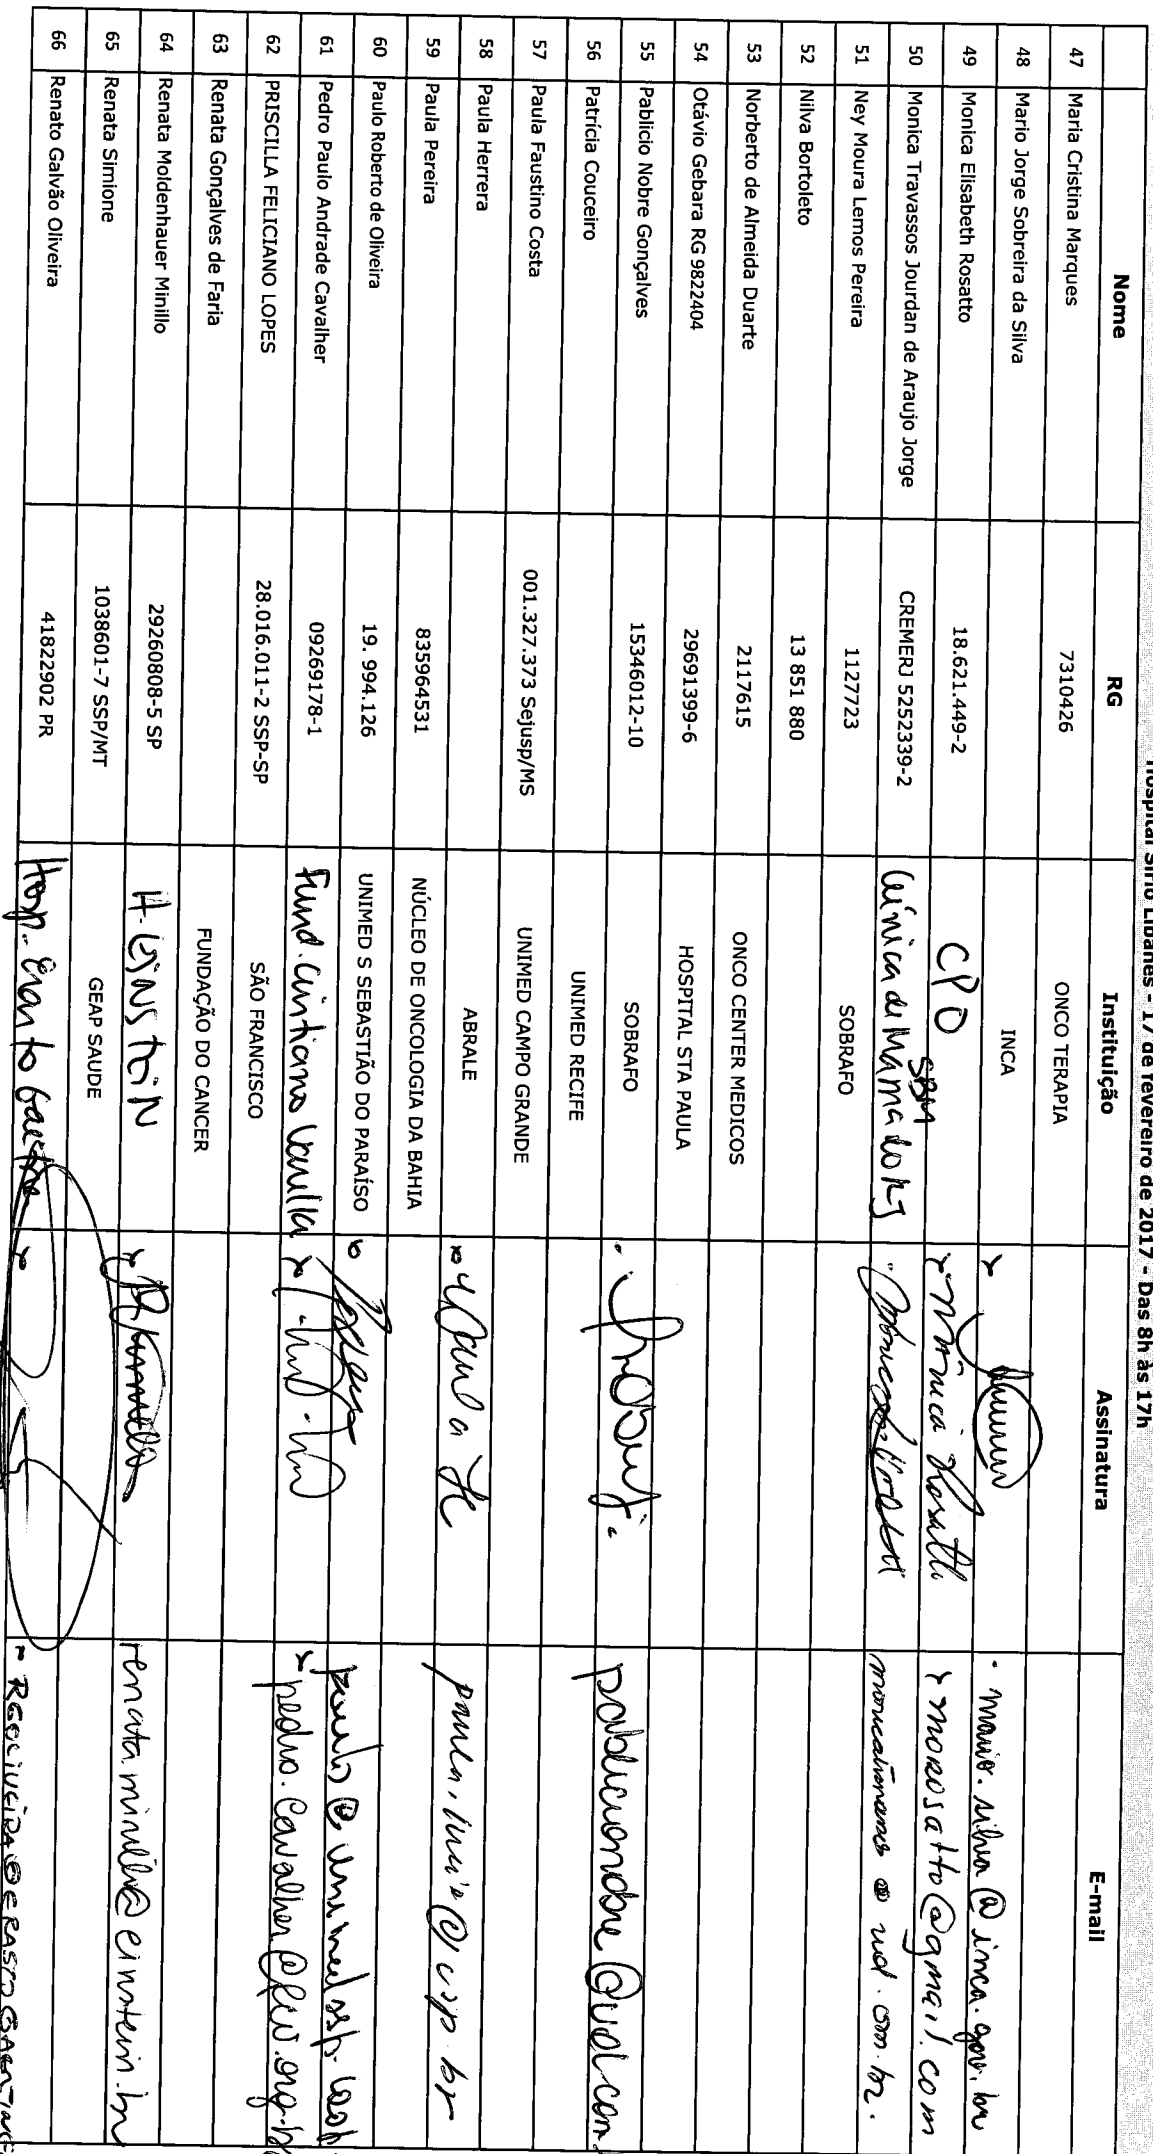 Hospital Sírio Libanês - 17 de fevereiro de 2017 - Das 8h às 17h
Nome RG Instituição Assinatura E-mail
47 Maria Cristina Marques 7310426 ONCO TERAPIA
48 Mario Jorge Sobreira da Silva INCA mario.silva@inca.gov.br
49 Monica Elisabeth Rosatto 18.621.449-2 CPO Mônica Rosatto morosatto@gmail.com
SBM
50 Monica Travassos Jourdan de Araujo Jorge CREMERJ 5252339-2 Clínica de Mama do RJ
51 Ney Moura Lemos Pereira 1127723 SOBRAFO
52 Nilva Bortoleto 13 851 880
53 Norberto de Almeida Duarte 2117615 ONCO CENTER MEDICOS
54 Otávio Gebara RG 9822404 29691399-6 HOSPITAL STA PAULA
55 Pablicio Nobre Gonçalves 15346012-10 SOBRAFO
56 Patrícia Couceiro UNIMED RECIFE
57 Paula Faustino Costa 001.327.373 Sejusp/MS UNIMED CAMPO GRANDE
58 Paula Herrera ABRALE
59 Paula Pereira 835964531 NÚCLEO DE ONCOLOGIA DA BAHIA
60 Paulo Roberto de Oliveira 19. 994.126 UNIMED S SEBASTIÃO DO PARAÍSO
61 Pedro Paulo Andrade Cavalher 09269178-1 Fund. Cristiano Varella
62 PRISCILLA FELICIANO LOPES 28.016.011-2 SSP-SP SÃO FRANCISCO
63 Renata Gonçalves de Faria FUNDAÇÃO DO CANCER
64 Renata Moldenhauer Minillo 29260808-5 SP H. EINSTEIN renata.minillo@einstein.br
65 Renata Simione 1038601-7 SSP/MT GEAP SAUDE
66 Renato Galvão Oliveira 41822902 PR Hosp. Erasto Gaertner